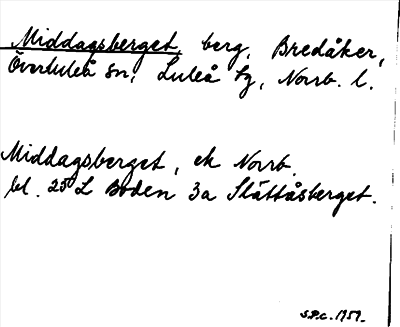 Middagsberget, berg, Bredåker,
Överluleå sn, Luleå tg, Norrb. l.
Middagsberget, ek Norrb.
bl. 25 L Boden 3a Slättåsberget.
S.P.c. 1959.